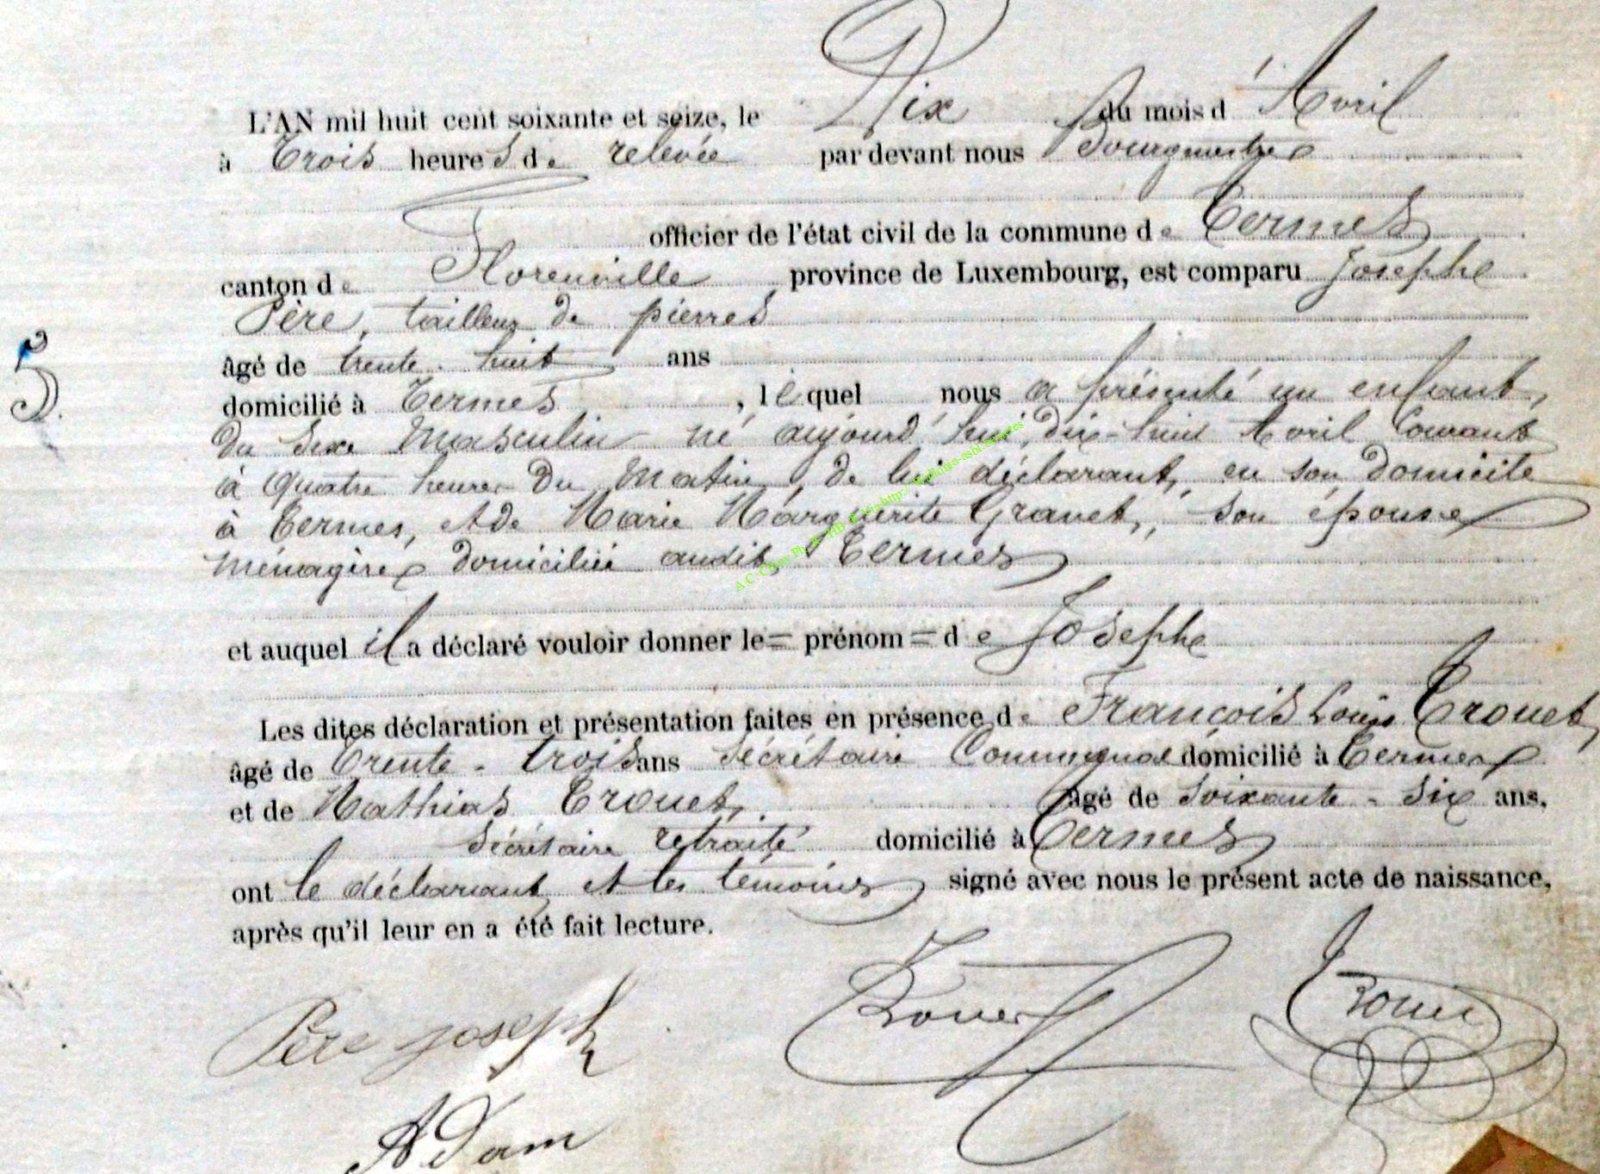 L'AN mil huit cent soixante et seize, le Dix du mois d'Avril
à Trois heures de relevée par devant nous Bourgmestre
officier de l'état civil de la commune de Termes
canton de Florenville province de Luxembourg, est comparu Josephe
Père, tailleur de pierres
âgé de trente-huit ans
domicilié à Termes, lequel nous a présenté un enfant,
du sexe Masculin né aujourd'hui, dix-huit Avril Courant
à quatre heures du Matin, de lui déclarant, en son domicile
à Termes, et de Marie Marguerite Gravet, son épouse
ménagère domiciliée audit Termes
et auquel il a déclaré vouloir donner le = prénom = de Josephe
Les dites déclaration et présentation faites en présence de François Louis Trouet
âgé de Trente-trois ans Secrétaire Communal domicilié à Termes
et de Mathias Trouet, âgé de soixante-six ans,
Secrétaire retraité domicilié à Termes
ont le déclarant et les témoins signé avec nous le présent acte de naissance,
après qu'il leur en a été fait lecture.
5.
Père Joseph
Trouet
Trouet
Adam